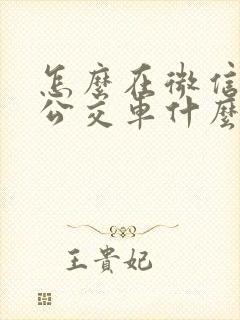 怎麼在微信
公交車什麼
王貴妃